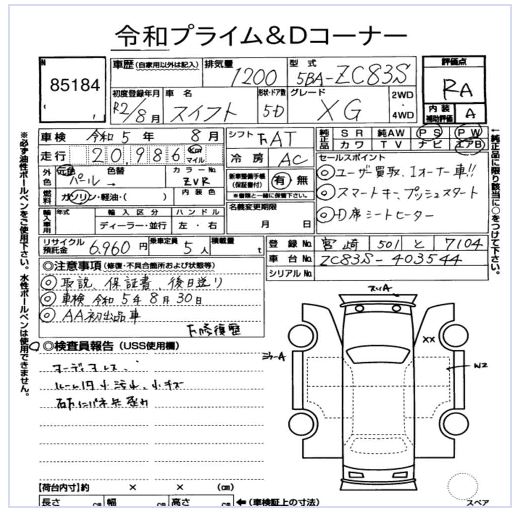 令和プライム＆Dコーナー
No.
85184
車歴（自家用以外は記入）
排気量 1200
型式 5BA-ZC83S
評価点 RA
内装補助評価 A
初度登録年月 R2/8月
車名 スイフト
形状・ドア数 5D
グレード XG
2WD・4WD
車検 令和5年 8月
シフト FAT
走行 20,986 km マイル
冷房 AC
純正品 SR 純AW PS PW
カワ TV ナビ エアB
外色 元色 パール 色替 カラーNo. ZVR 内装色
新車整備手帳（保証書付） 有・無
＜書類と一緒に保管＞
燃料 ガソリン・軽油・（ ）
セールスポイント
◎ユーザー買取、1オーナー車!!
◎スマートキー、プッシュスタート
◎D席シートヒーター
輸入車用 年式 輸入区分 ハンドル
ディーラー・並行 左・右
名義変更期限
月 日
リサイクル預託金 6,960円 乗車定員 5人 積載量 t
登録No. 宮崎 501 と 7104
車台No. ZC83S-403544
シリアルNo.
◎注意事項（修復・不具合箇所および状態等）
◎取説、保証書、後日送り
◎車検 令和5年8月30日
◎AA初出品車
◎検査員報告（USS使用欄）
オーディオレス
ルーム内小汚れ、小キズ
A
ミラーA
XX
W2
【荷台内寸】約 × × （cm）
長さ cm 幅 cm 高さ cm ←（車検証上の寸法）
スペア
※必ず油性ボールペンをご使用下さい。水性ボールペンは使用できません。
←純正品に限り該当に○をつけて下さい。